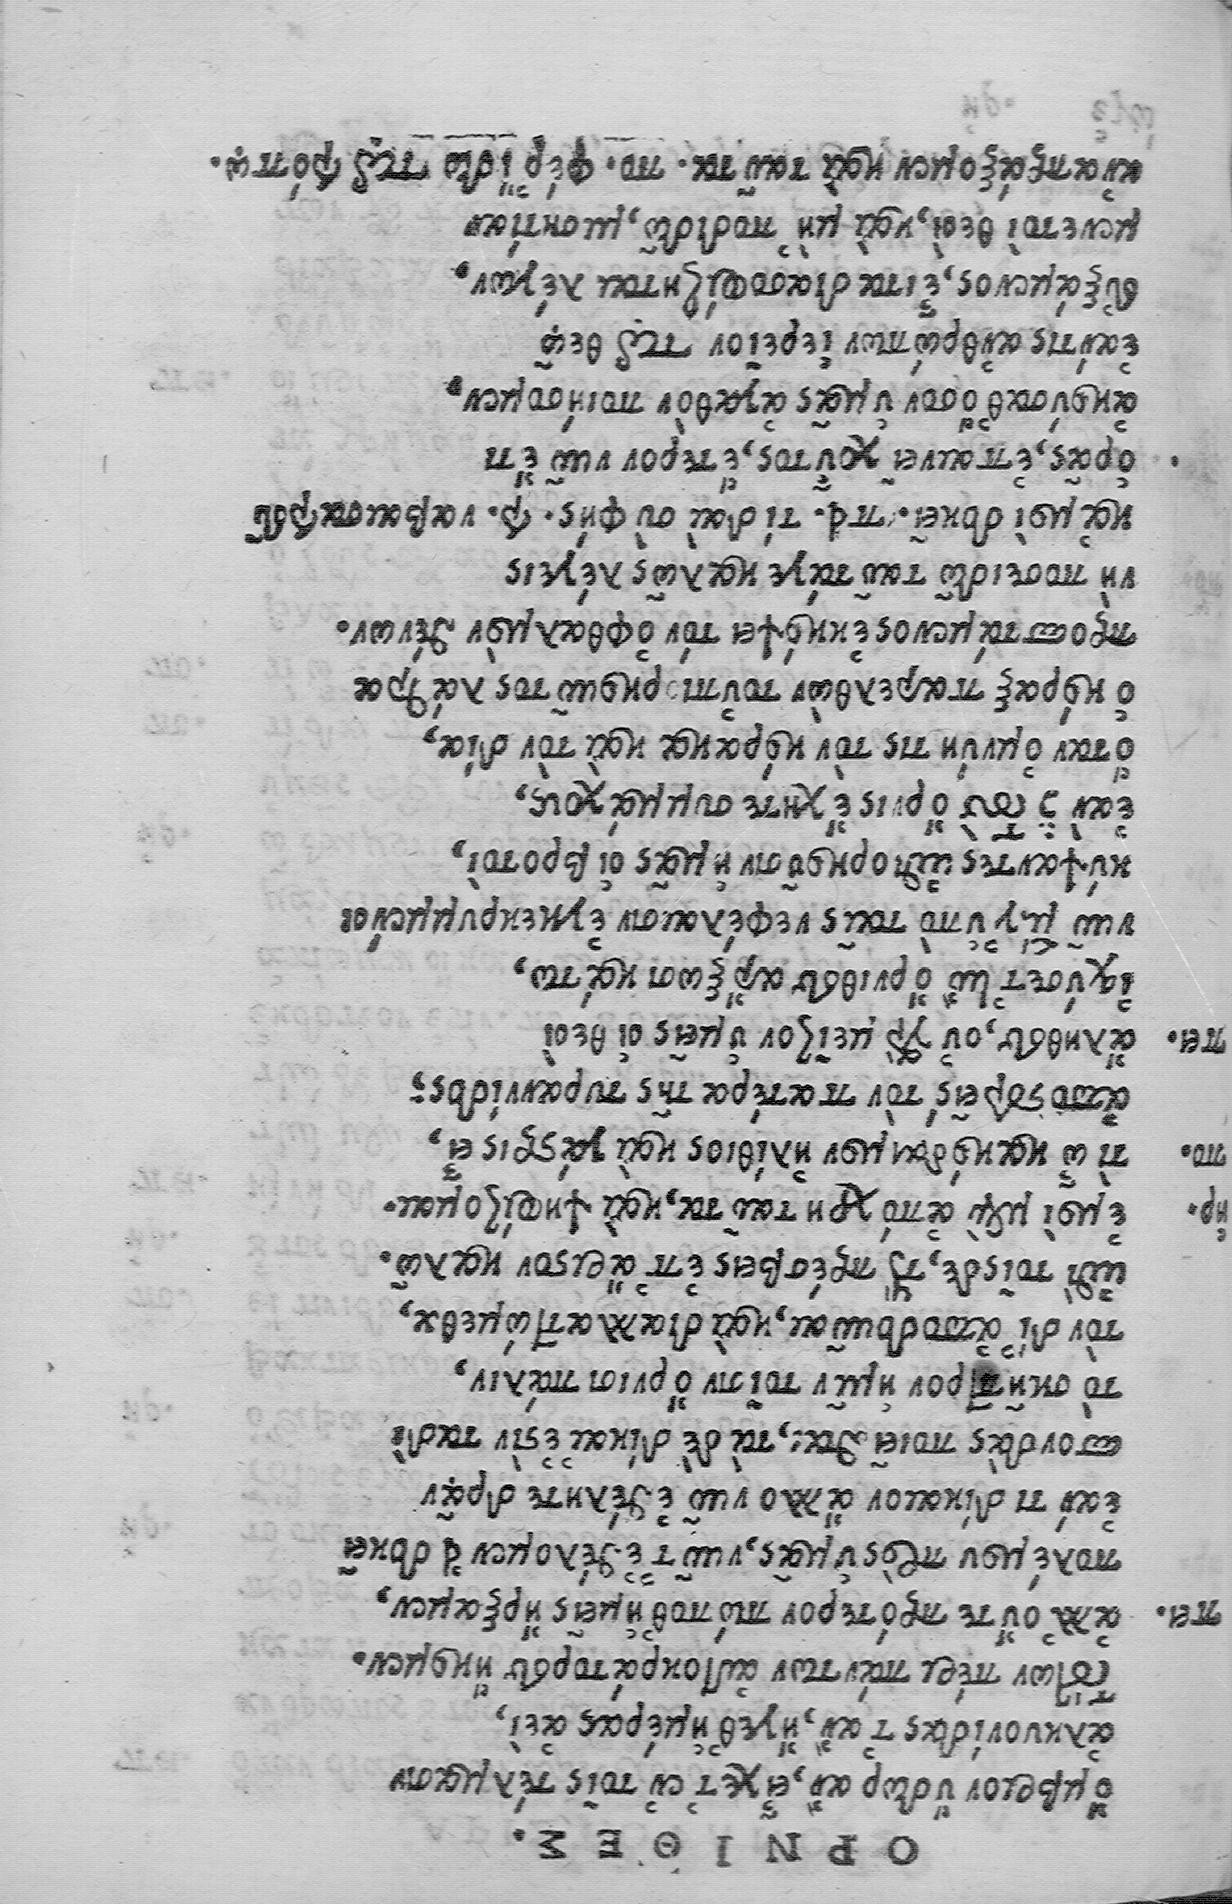 ΟΡΝΙΘΕΣ.
ὄμβριον ὕδωρ ἂν, εἴχετ' ἐν τοῖς τέλμασιν
ἀλκυονίδας τ' ἂν, ἤγεθ' ἡμέρας ἀεὶ,
τούτων πέρι πάντων αὐτοκράτορες ἥκομεν.
πει. ἀλλ' οὔτε πρότερον πώποθ' ἡμεῖς ἤρξαμεν,
πολέμου πρὸς ὑμᾶς, νῦν τ' ἐθέλομεν εἰ δοκεῖ
ἐάν τι δίκαιον ἄλλο νῦν ἐθέλητε δρᾷν
σπονδὰς ποιεῖσθαι, τὰ δὲ δίκαι' ἐστὶν ταδὶ
τὸ σκῆπτρον ἡμῖν τοῖσιν ὄρνισι πάλιν,
τὸν δί' ἀποδοῦναι, καὶ διαλλαττώμεθα,
ἐπὶ τοῖσδε, τοὺς πρέσβεις ἐπ' ἄριστον καλῶ.
ἡρ. ἐμοὶ μὲν ἀπόχρη ταῦτα, καὶ ψηφίζομαι.
πο. τί ὦ κακόδαιμον ἠλίθιος καὶ γάστρις εἶ,
ἀποστερεῖς τὸν πατέρα τῆς τυραννίδος;
πει. ἄληθες, οὐ γὰρ μεῖζον ὑμεῖς οἱ θεοὶ
ἰσχύσετ' ἢν ὄρνιθες ἄρξωσι κάτω,
νῦν μέν γ' ὑπὸ ταῖς νεφέλαισιν ἐγκεκρυμμένοι
κύψαντες ἐπιορκοῦσιν ἡμᾶς οἱ βροτοὶ,
ἐὰν δὲ τοὺς ὄρνις ἔχητε συμμάχους,
ὅταν ὀμνύη τις τὸν κόρακα καὶ τὸν δία,
ὁ κόραξ παρελθὼν τοὐπιορκοῦντος λάθρα
προσπτάμενος ἐκκόψει τὸν ὀφθαλμὸν θένων.
νὴ ποσειδῶ ταῦτά γε καλῶς λέγεις
κᾀμοὶ δοκεῖ. πει. τί δαὶ σὺ φής. τρ. ναβαισατρεῦ
ὁρᾷς, ἐπαινεῖ χοὖτος, ἕτερον νῦν ἔτι
ἀκούσαθ' ὅσον ὑμᾶς ἀγαθὸν ποιήσομεν,
ἐάν τις ἀνθρώπων ἱερεῖον τῷ θεῷ
εὐξάμενος, εἶτα διασοφίζηται λέγων,
μενετοὶ θεοὶ, καὶ μὴ 'ποδιδῷ, μισητίαν
ἀναπράξομεν καὶ ταῦτα. πο. φέρ' ἴδω τῷ τρόπῳ.